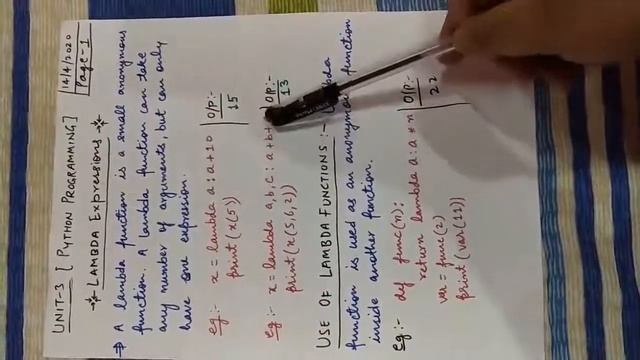 UNIT-3 [PYTHON PROGRAMMING]
14/4/2020
Page-1
LAMBDA EXPRESSIONS
→ A lambda function is a small anonymous
function. A lambda function can take
any number of arguments, but can only
have one expression.
eg:- x = lambda a: a+10
print(x(5))
O/P:-
15
eg:- x = lambda a,b,c: a+b+
print(x(5,6,2))
O/P:-
13
USE OF LAMBDA FUNCTIONS:-
function is used as an anonymous function
inside another function.
eg:- def func(n):
return lambda a: a*n
var = func(2)
print(var(11))
O/P:-
22